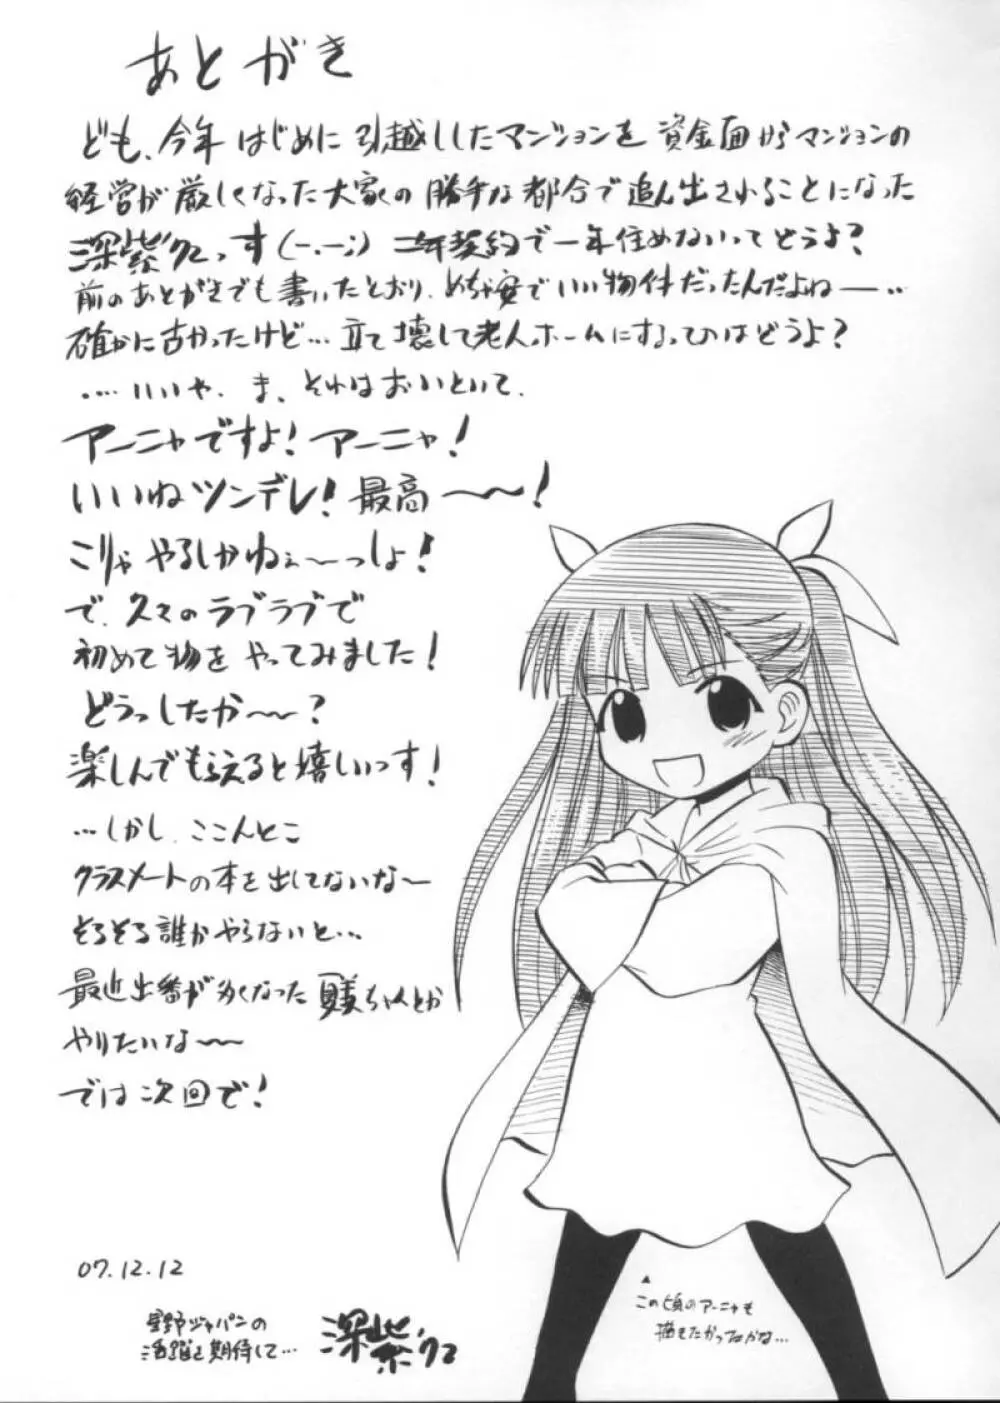 あとがき
ども、今年はじめに引越ししたマンションを資金面からマンションの
経営が厳しくなった大家の勝手な都合で追ん出されることになった
深紫クっす(-.-;) 二年契約で一年住めないってどうよ?
前のあとがきでも書いたとおり、めちゃ安でいい物件だったんだよねー…
確かに古かったけど…立て壊して老人ホームにするってのはどうよ?
…いいや、ま、それはおいといて、
アーニャですよ!アーニャ!
いいねツンデレ!最高〜〜!
こりゃやるしかねぇ〜っしょ!
で、久々のラブラブで
初めて物をやってみました!
どうっしたか〜〜?
楽しんでもらえると嬉しいっす!
…しかし、ここんとこ
クラスメートの本を出してないな〜
そろそろ誰かやらないと…
最近出番が多くなった夏美ちゃんとか
やりたいな〜〜
では次回で!
07.12.12
星野ジャパンの
活躍を期待して…
深紫
▲
この頃のアーニャも
描きたかったかな…